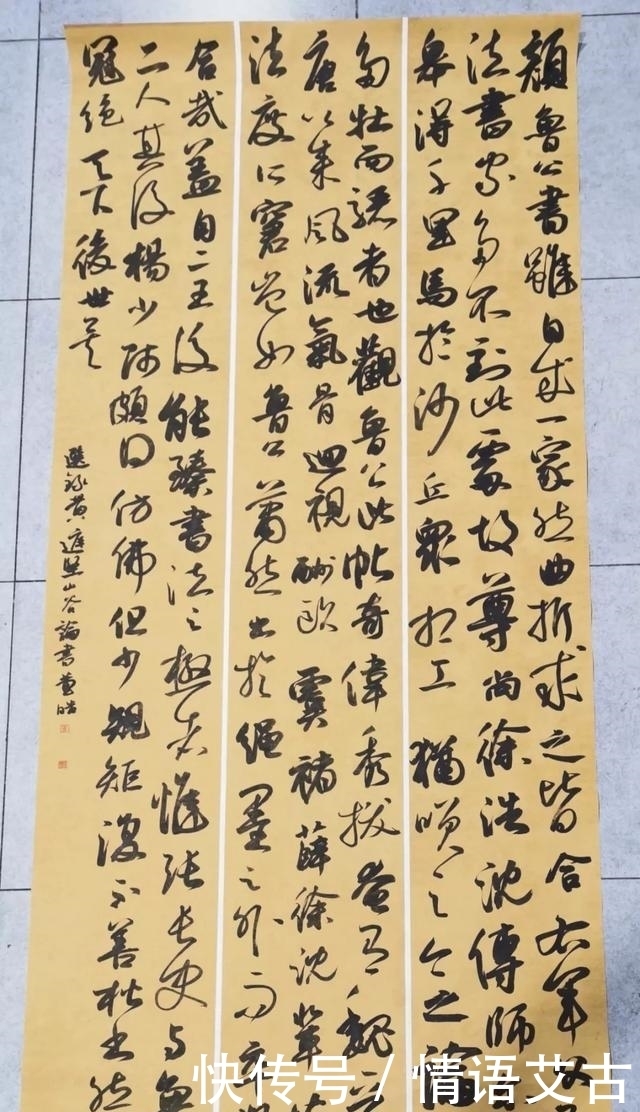 顏魯公書雖自成一家然曲折求之皆合右軍父
法書家多不到此處故尊尚徐浩沈傳師
皋得千里馬於沙丘衆相工猶笑之今之論
多牡而驪者也觀魯公此帖奇偉秀拔奄有魏
唐以来風流氣骨迴視酬歐虞褚薛徐沈輩
法度所窘豈如魯公蕭然出於繩墨之外而卒
合哉蓋自二王後能臻書法之極者惟張長史与魯
二人其後楊少師頗得仿佛但少規矩復不善楷書然
冠絶天下後世矣
選録黄庭堅山谷論書
快传号/情语艾古